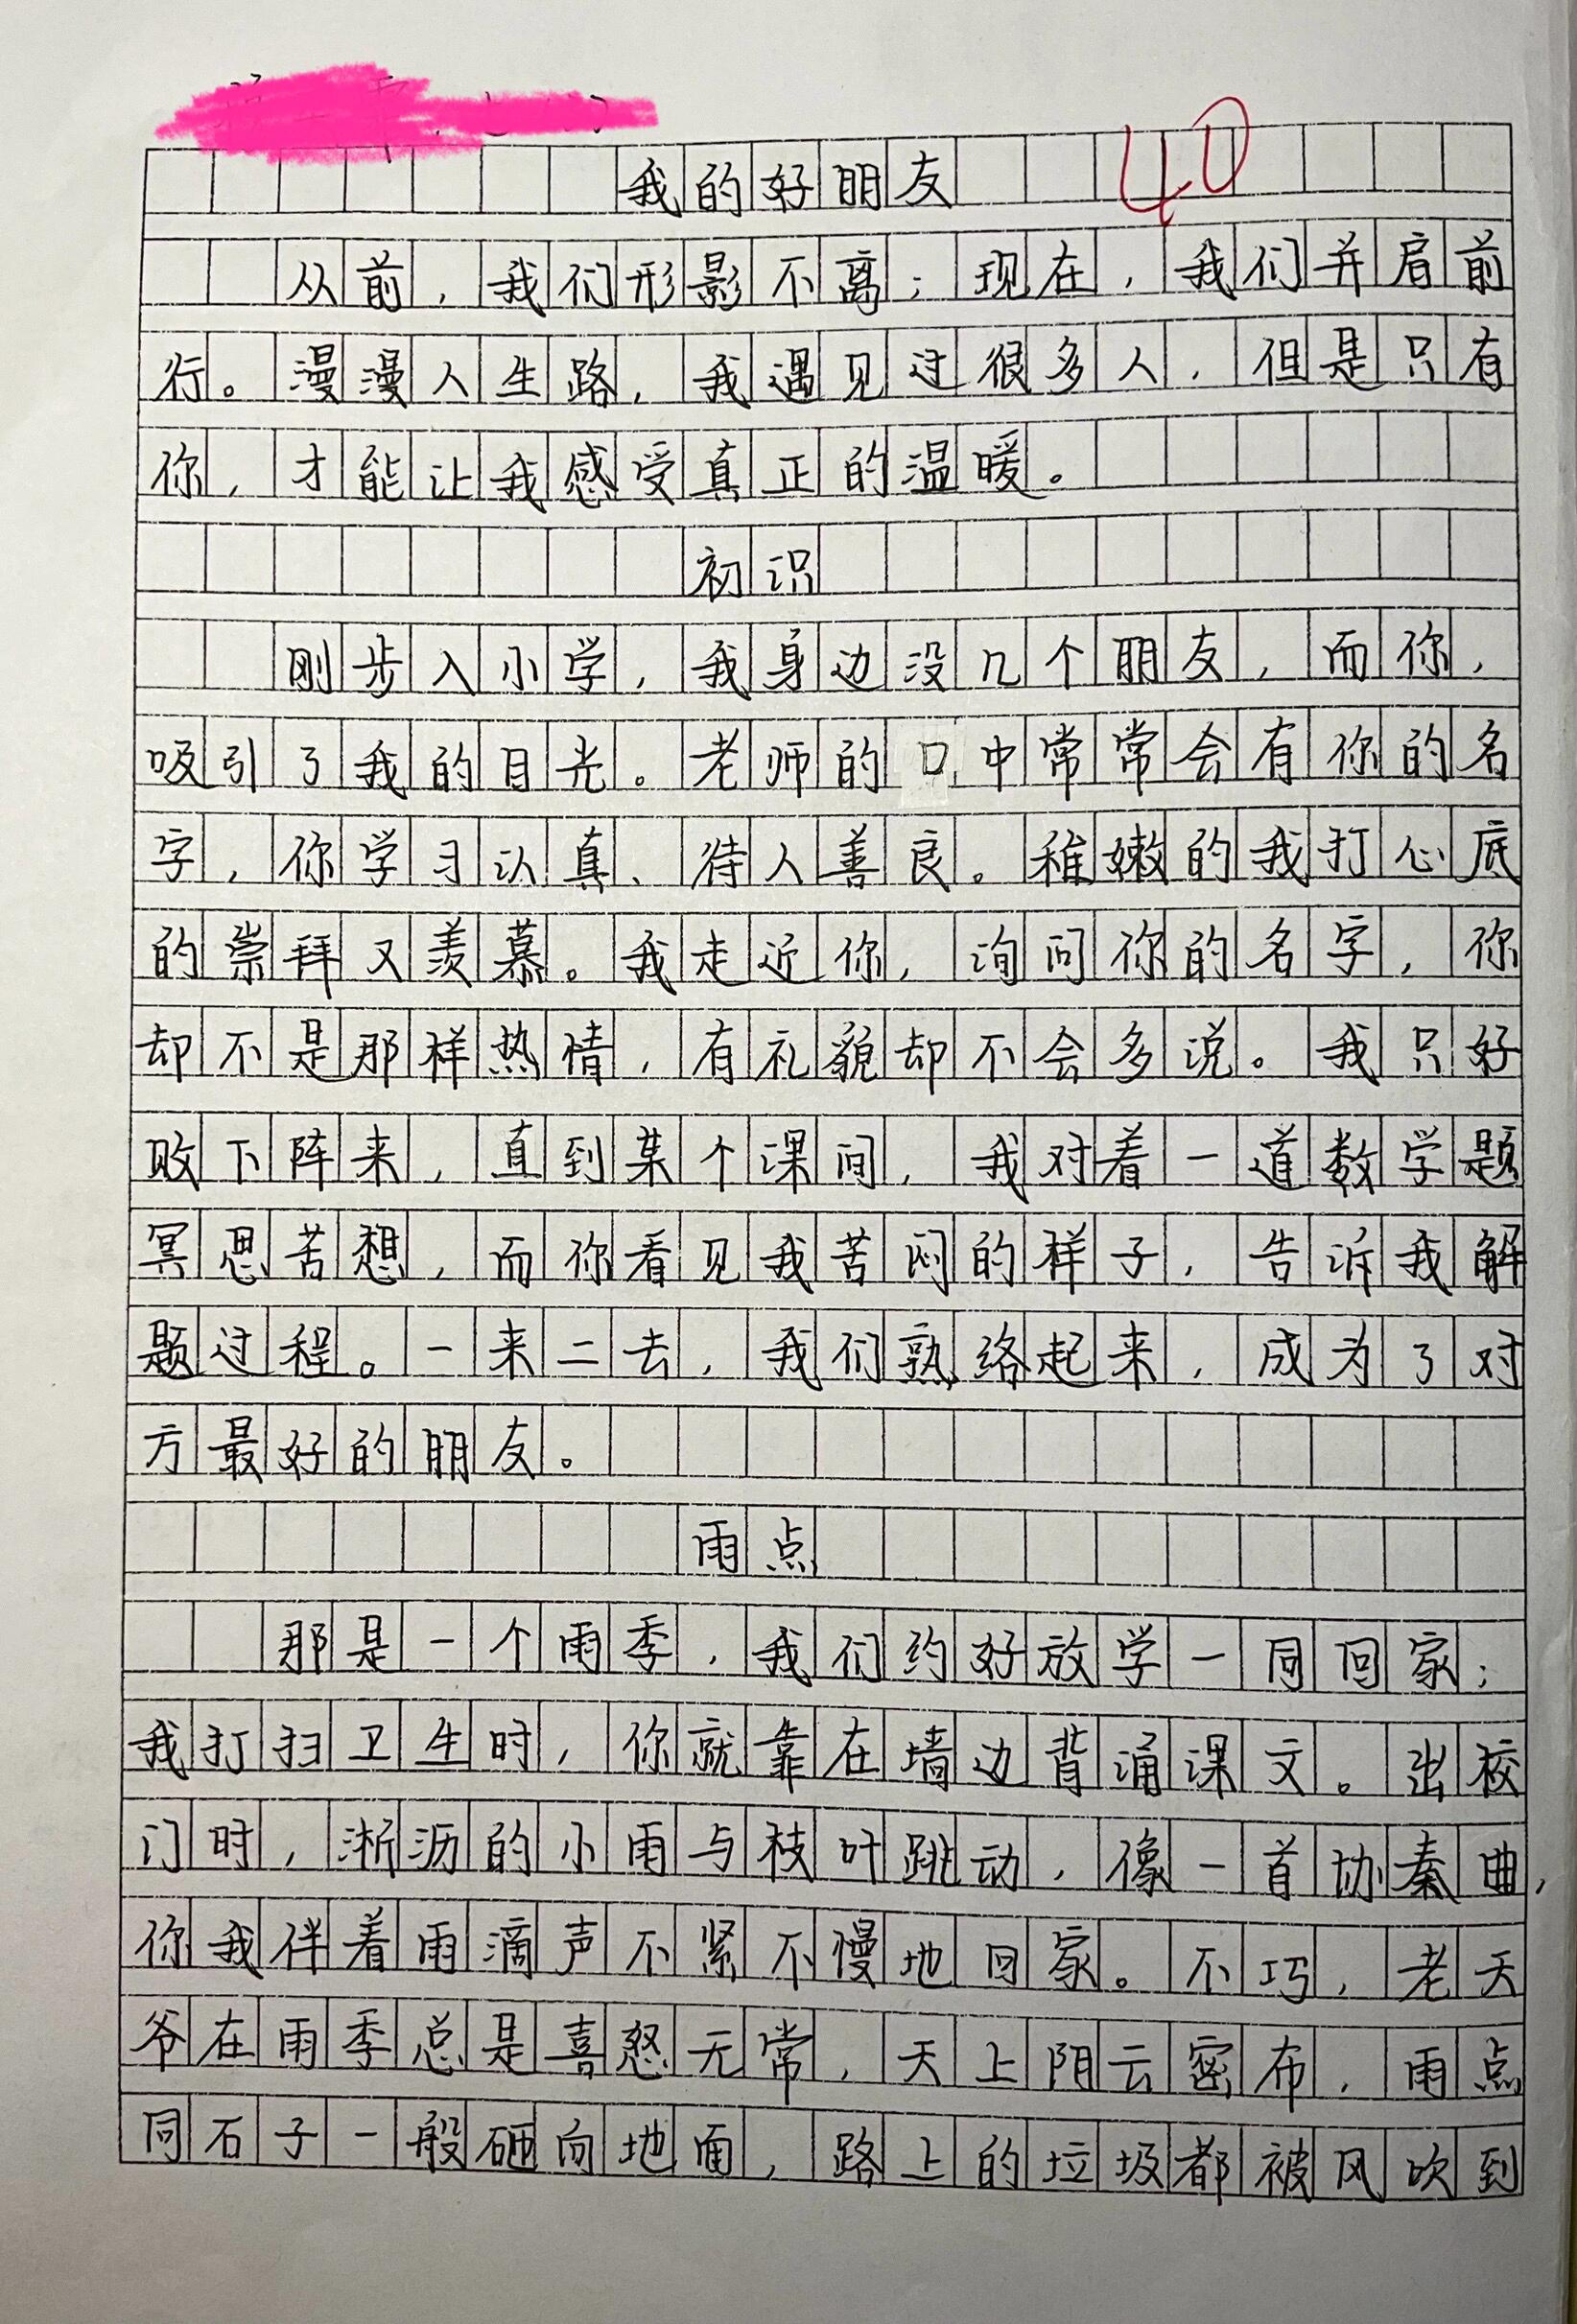 我的好朋友 40
从前，我们形影不离；现在，我们并肩前
行。漫漫人生路，我遇见过很多人，但是只有
你，才能让我感受真正的温暖。
初识
刚步入小学，我身边没几个朋友，而你，
吸引了我的目光。老师的口中常常会有你的名
字，你学习认真、待人善良。稚嫩的我打心底
的崇拜又羡慕。我走近你，询问你的名字，你
却不是那样热情，有礼貌却不会多说。我只好
败下阵来，直到某个课间，我对着一道数学题
冥思苦想，而你看见我苦闷的样子，告诉我解
题过程。一来二去，我们熟络起来，成为了对
方最好的朋友。
雨点
那是一个雨季，我们约好放学一同回家；
我打扫卫生时，你就靠在墙边背诵课文。出校
门时，淅沥的小雨与枝叶跳动，像一首协奏曲，
你我伴着雨滴声不紧不慢地回家。不巧，老天
爷在雨季总是喜怒无常，天上阴云密布，雨点
同石子一般砸向地面，路上的垃圾都被风吹到